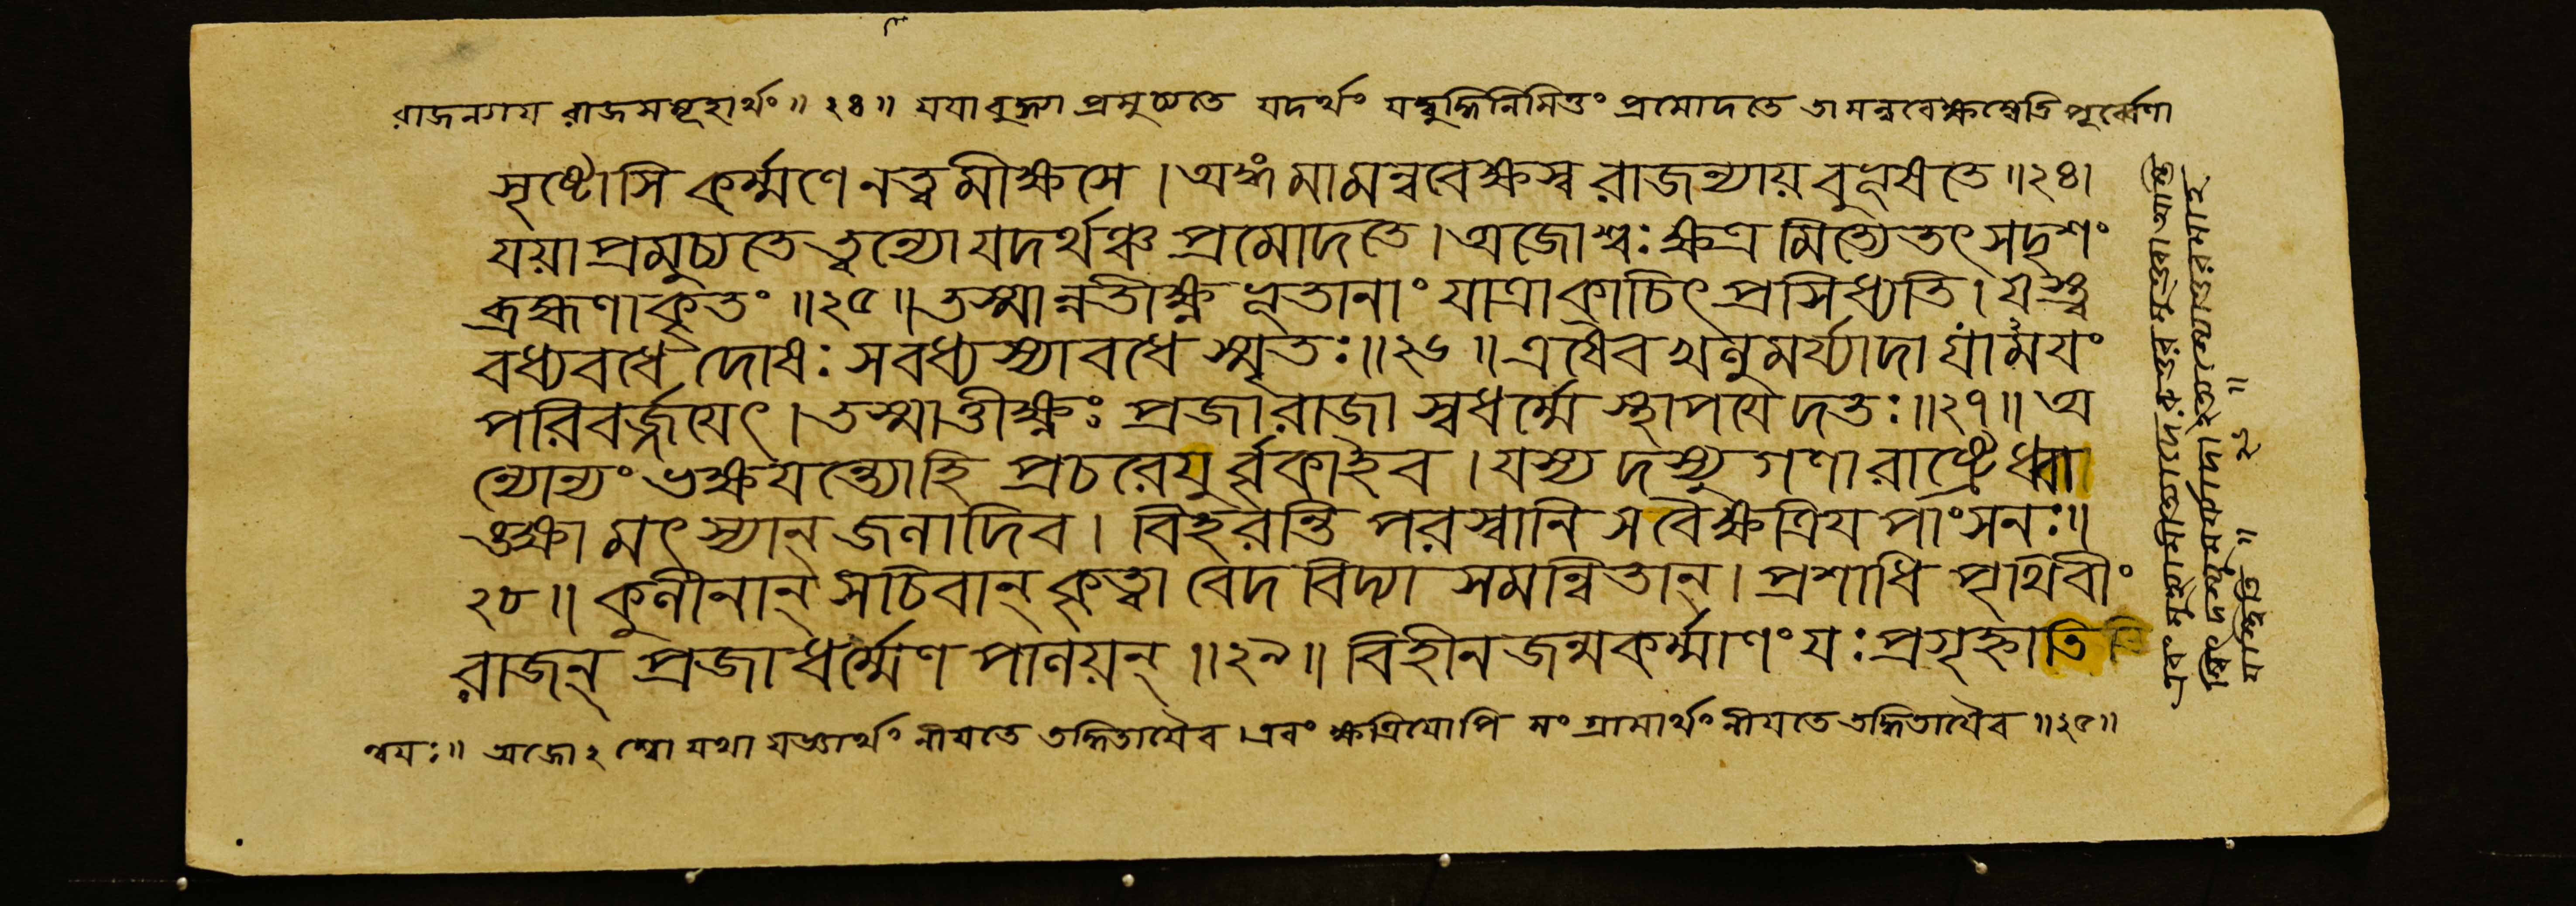 রাজনগয় রাজমস্পৃহার্থং ॥ ২৪ ॥ যযা বুদ্ধ্যা প্রমুচ্যতে যদর্থং যদ্বুদ্ধিনিমিত্তং প্রমোদতে তামন্ববেক্ষস্বেতি পূর্ব্বেণা
সৃষ্টোসি কর্ম্মণে নত্বমীক্ষসে । অঙ্গ মামন্ববেক্ষস্ব রাজন্যায় বুভূষতে ॥ ২৪ ।
যয়া প্রমুচ্যতে ত্বন্যো যদর্থঞ্চ প্রমোদতে । অজোশ্বঃ ক্ষত্রমিত্যেতৎ সদৃশং
ব্রহ্মণা কৃতং ॥ ২৫ ॥ তস্মান্নতীক্ষ্ণ ভূতানাং যাত্রা কাচিৎ প্রসিধ্যতি । যস্ত্ব
বধ্যবধে দোষঃ সবধ্যস্যাবধে স্মৃতঃ ॥ ২৬ ॥ এষৈব খলু মর্য্যাদা যাময়ং
পরিবর্জ্জয়েৎ । তস্মাত্তীক্ষ্ণঃ প্রজা রাজা স্বধর্ম্মে স্থাপয়েদতঃ ॥ ২৭ ॥ অ
ন্যোন্যং ভক্ষয়ন্ত্যোহি প্রচরেয়ুর্বৃকাইব । যস্য দস্যুগণা রাষ্ট্রে ধ্বা
ঙ্ক্ষা মৎস্যান্ জলাদিব । বিহরন্তি পরস্বানি সবৈ ক্ষত্রিয় পাংসনঃ ॥
২৮ ॥ কুলীনান্ সচিবান্ কৃত্বা বেদ বিদ্যা সমন্বিতান্ । প্রশাধি পৃথিবীং
রাজন্ প্রজা ধর্ম্মেণ পালয়ন্ ॥ ২৯ ॥ বিহীনজন্মকর্ম্মাণং যঃ প্রগৃহ্নাতি
ন্বয়ঃ ॥ অজোঽশ্বো যথা যজ্ঞার্থং নীয়তে তদ্ধিতায়ৈব । এবং ক্ষত্রিয়োপি সংগ্রামার্থং নীয়তে তদ্ধিতায়ৈব ॥ ২৫ ॥